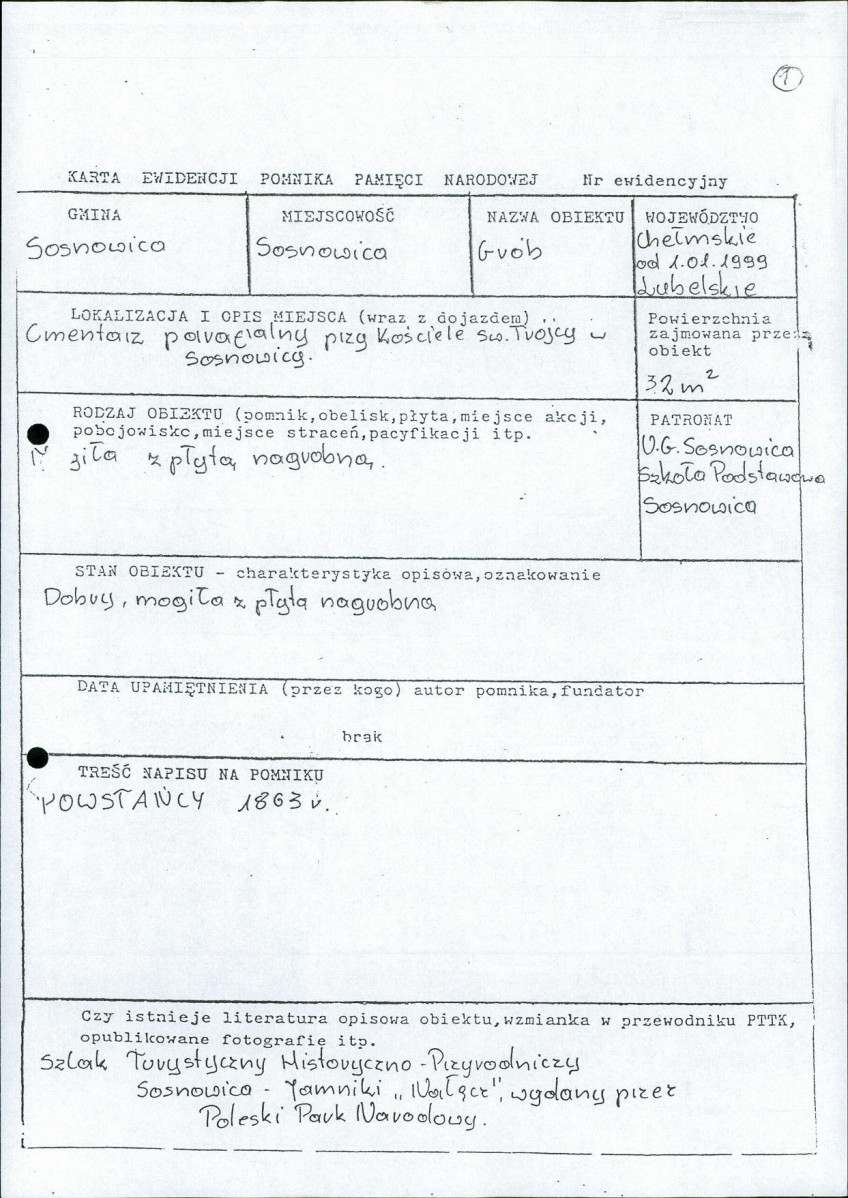 1
KARTA EWIDENCJI POMNIKA PAMIĘCI NARODOWEJ Nr ewidencyjny
GMINA
Sosnowica
MIEJSCOWOŚĆ
Sosnowica
NAZWA OBIEKTU
Grób
WOJEWÓDZTWO
Chełmskie
od 1.01.1999
Lubelskie
LOKALIZACJA I OPIS MIEJSCA (wraz z dojazdem)
Cmentarz parafialny przy Kościele św. Trójcy w
Sosnowicy.
Powierzchnia
zajmowana przez
obiekt
32 m²
RODZAJ OBIEKTU (pomnik,obelisk,płyta,miejsce akcji,
pobojowisko,miejsce straceń,pacyfikacji itp.
M giła z płytą nagrobną.
PATRONAT
U.G. Sosnowica
Szkoła Podstawowa
Sosnowica
STAN OBIEKTU - charakterystyka opisowa,oznakowanie
Dobry, mogiła z płytą nagrobną
DATA UPAMIĘTNIENIA (przez kogo) autor pomnika,fundator
brak
TREŚĆ NAPISU NA POMNIKU
"POWSTAŃCY 1863 r.
Czy istnieje literatura opisowa obiektu,wzmianka w przewodniku PTTK,
opublikowane fotografie itp.
Szlak Turystyczny Historyczno-Przyrodniczy
Sosnowica - Jamniki wydany przez
Poleski Park Narodowy.